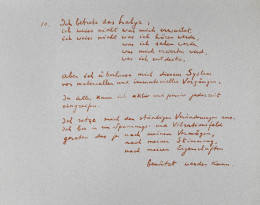 10. Ich betrete das Labyr,
ich weiss nicht was mich erwartet,
ich weiss nicht was ich hören werde,
was ich sehen werde,
was mich erwarten wird,
was ich entdecke,
aber ich überlasse mich diesem System
von materiellen und immateriellen Vorgängen.
In allem kann ich aktiv und jederzeit
eingreifen.
Ich setze mich den ständigen Veränderungen aus.
Ich bin in ein Spannungs- und Vibrationsfeld
geraten das je nach meinem Vermögen,
nach meiner Stimmung,
nach meinen Eigenschaften
benützt werden kann.